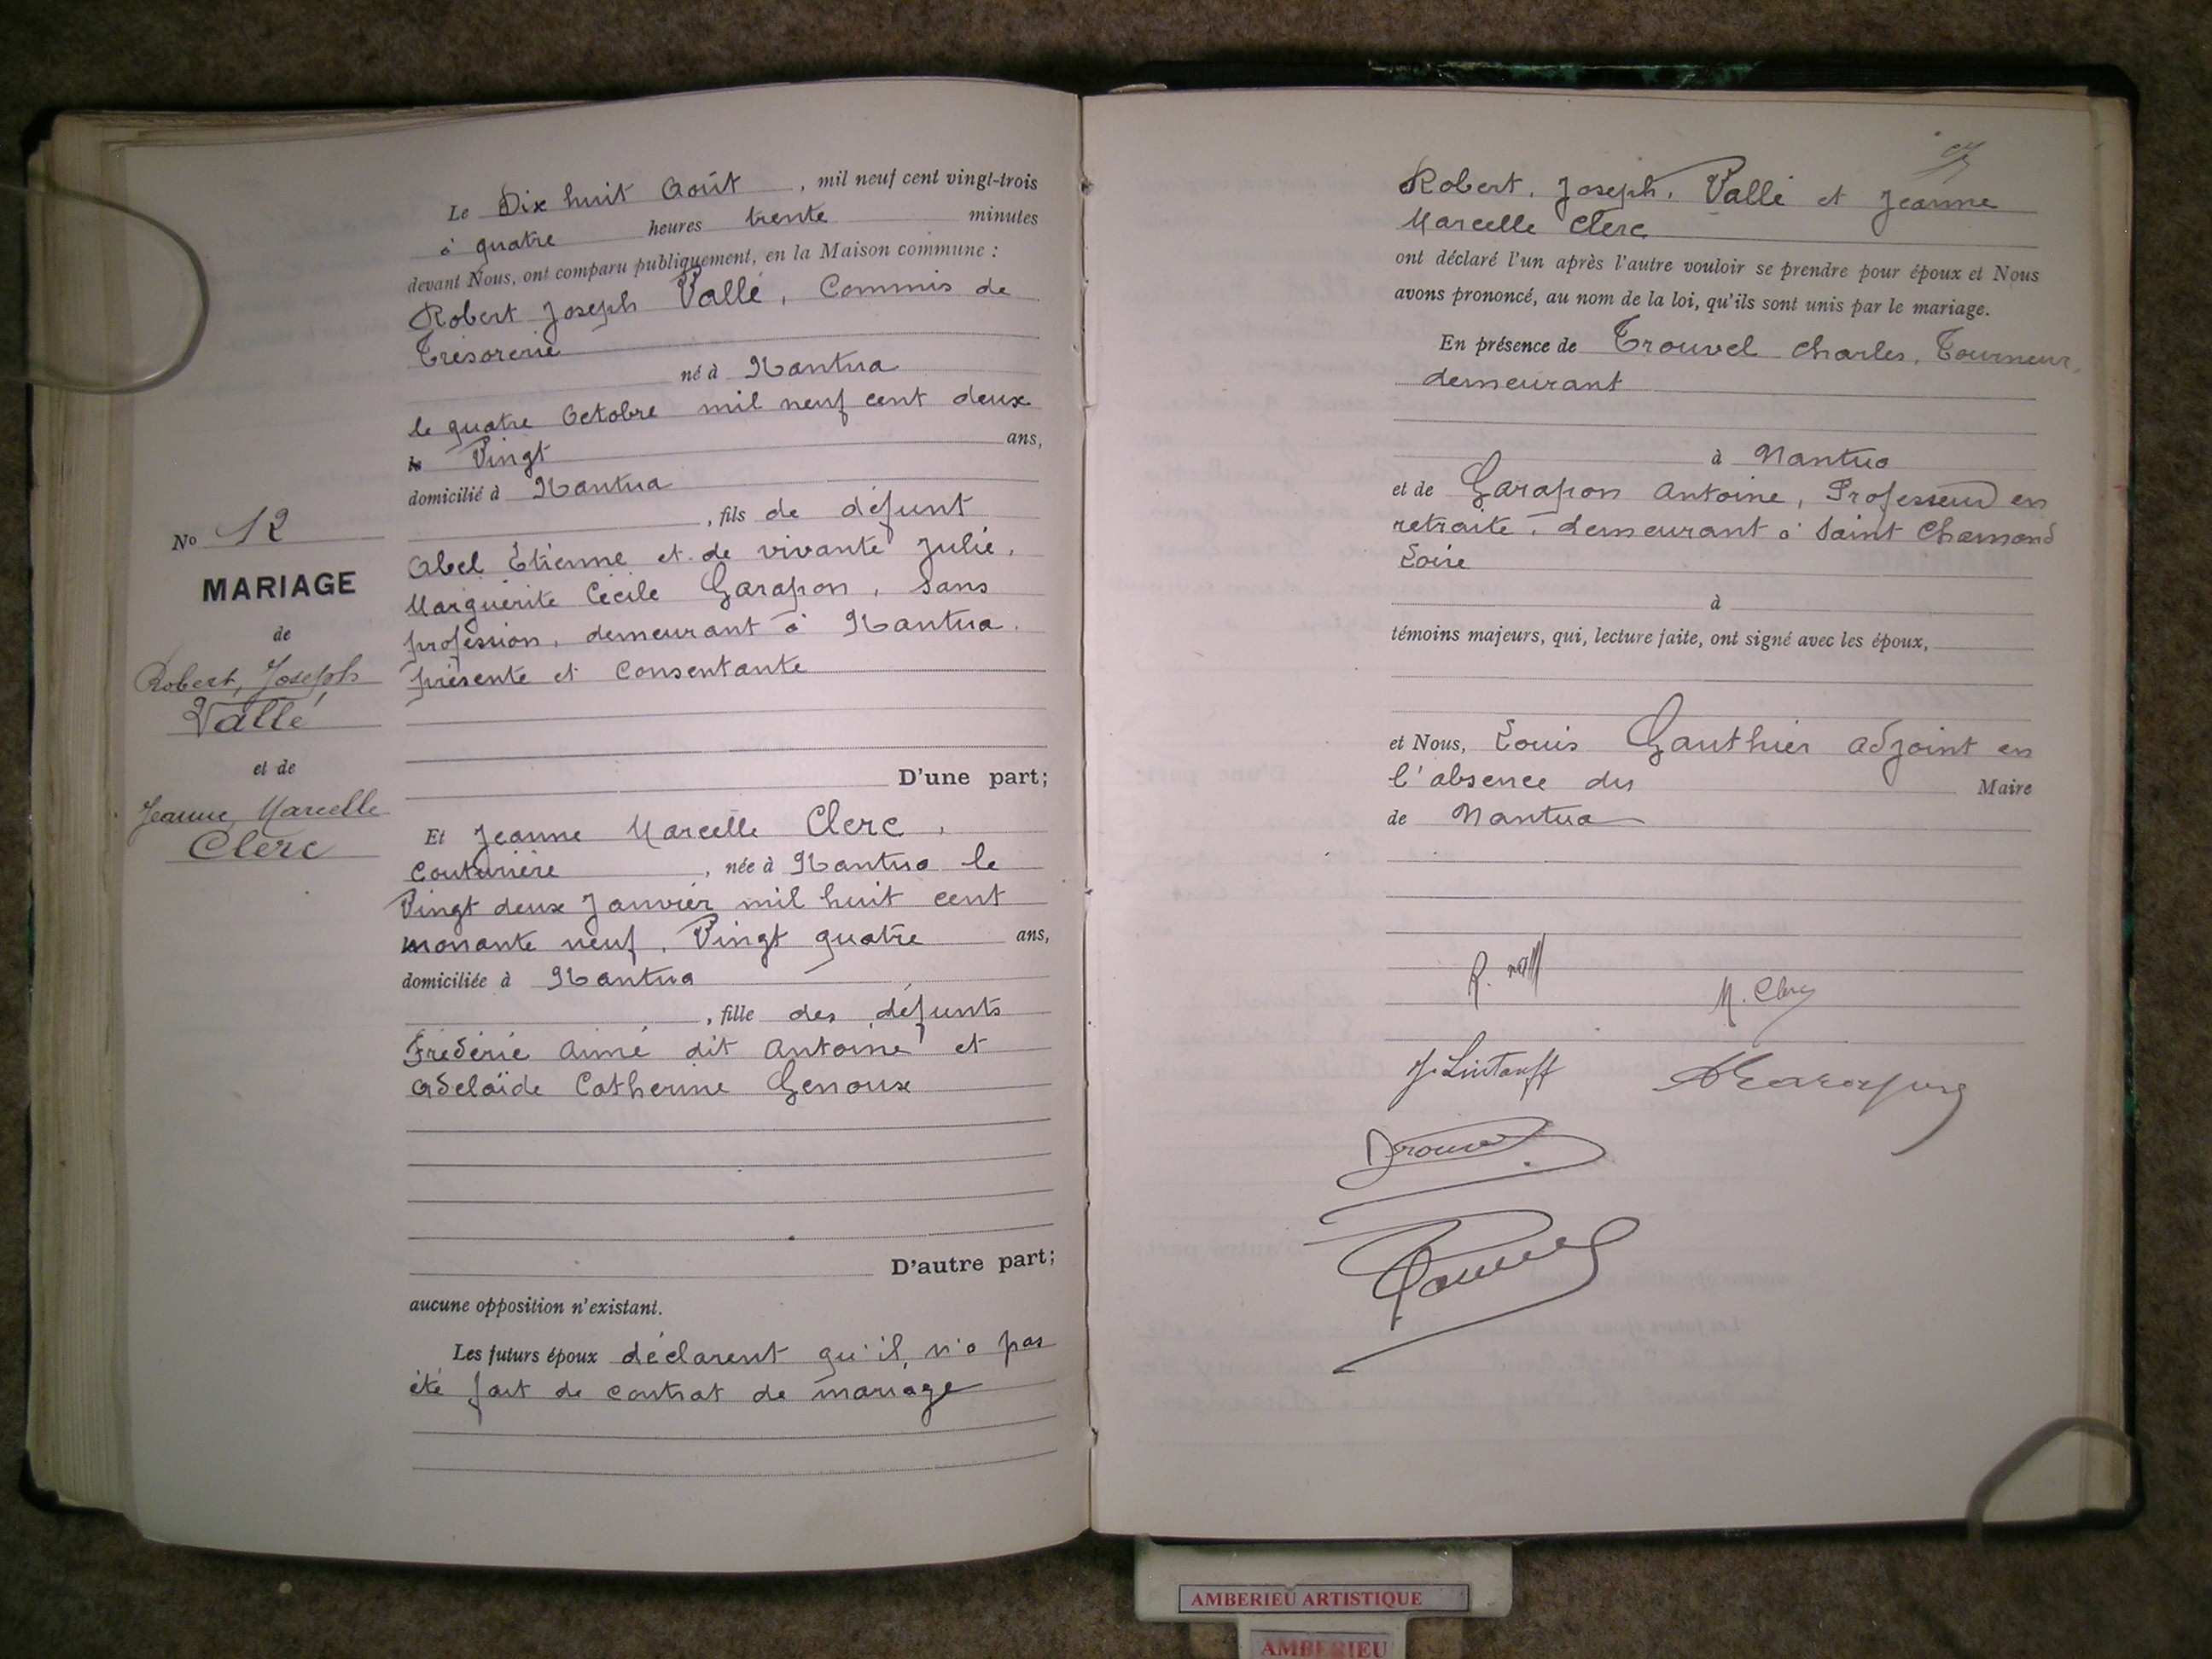 No 12
MARIAGE
de
Robert, Joseph
Vallé
et de
Jeanne, Marcelle
Clerc
Le Dix huit Août , mil neuf cent vingt-trois
à quatre heures trente minutes
devant Nous, ont comparu publiquement, en la Maison commune :
Robert Joseph Vallé, Commis de
Trésorerie
né à Nantua
le quatre Octobre mil neuf cent deux
Vingt ans,
domicilié à Nantua
, fils de défunt
Abel Etienne et de vivante Julie,
Marguerite Cécile Garapon, sans
profession, demeurant à Nantua.
présente et consentante
D'une part;
Et Jeanne Marcelle Clerc,
Couturière , née à Nantua le
Vingt deux Janvier mil huit cent
nonante neuf, Vingt quatre ans,
domiciliée à Nantua
, fille des défunts
Frédéric Aimé dit Antoine et
Adelaïde Catherine Genoux
D'autre part;
aucune opposition n'existant.
Les futurs époux déclarent qu'il n'a pas
été fait de contrat de mariage
Robert, Joseph, Vallé et Jeanne
Marcelle Clerc
ont déclaré l'un après l'autre vouloir se prendre pour époux et Nous
avons prononcé, au nom de la loi, qu'ils sont unis par le mariage.
En présence de Trouvel Charles, Tourneur,
demeurant
à Nantua
et de Garapon Antoine, Professeur en
retraite, demeurant à Saint Chamond
Loire
à
témoins majeurs, qui, lecture faite, ont signé avec les époux,
et Nous, Louis Gauthier adjoint en
l'absence du Maire
de Nantua
M. Clerc
AMBERIEU ARTISTIQUE
AMBERIEU